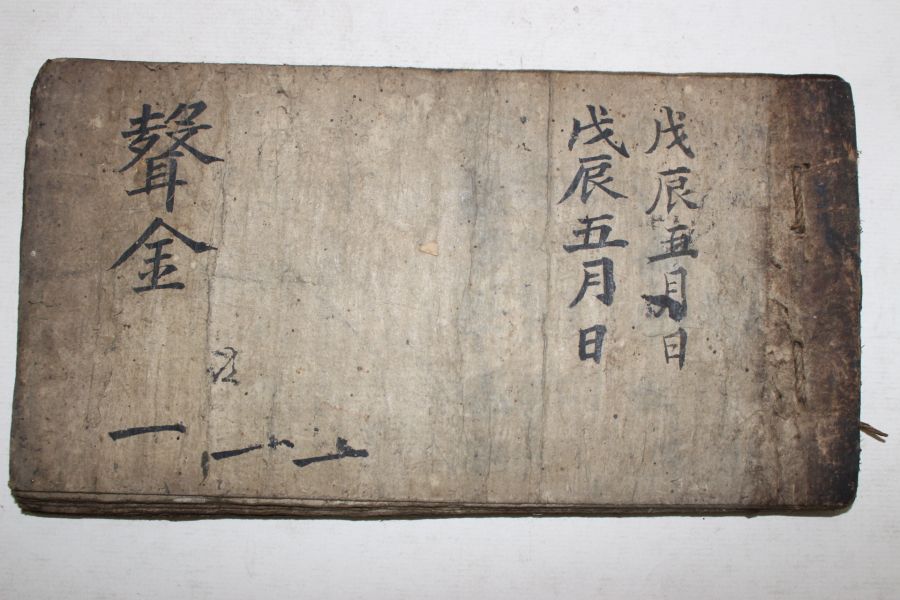 戊辰五月日
戊辰五月日
聲金
一